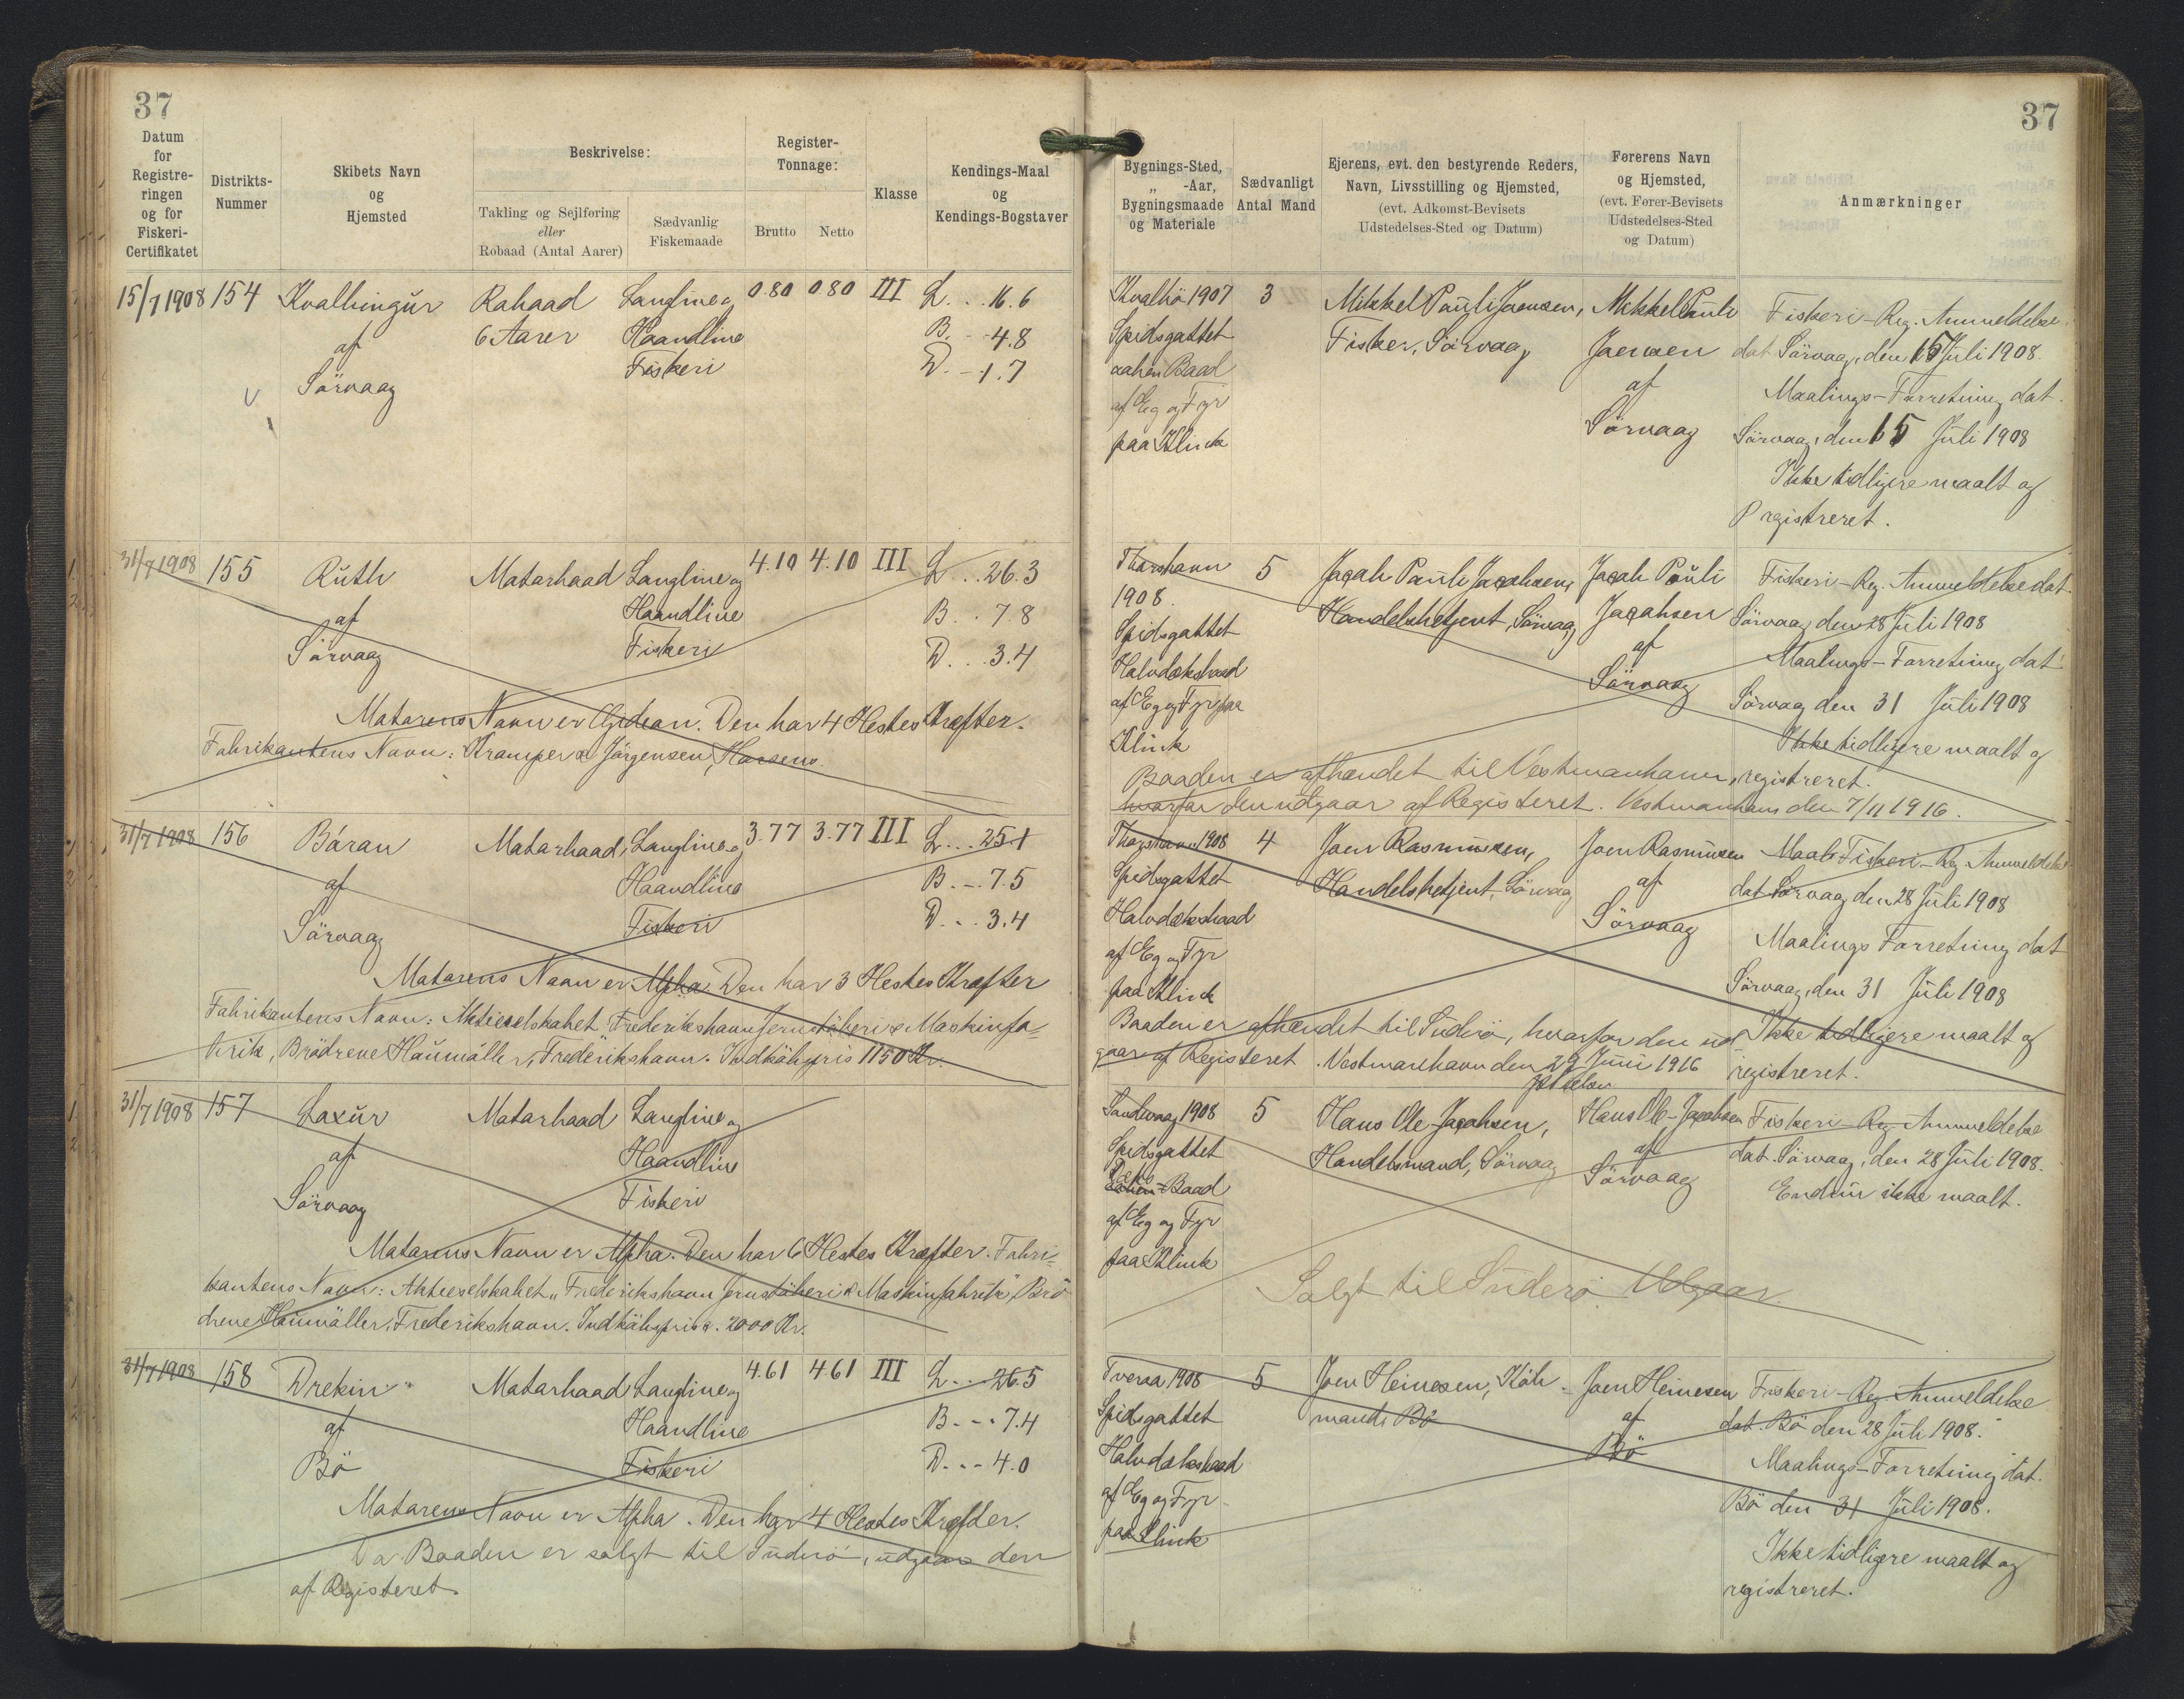 37
37
Datum for Registreringen og for Fiskeri-Certifikatet
Distrikts-Nummer
Skibets Navn og Hjemsted
Beskrivelse:
Takling og Sejlføring eller Robaad (Antal Aarer)
Sædvanlig Fiskemaade
Register-Tonnage:
Brutto
Netto
Klasse
Kendings-Maal og Kendings-Bogstaver
Bygnings-Sted, „ -Aar, Bygningsmaade og Materiale
Sædvanligt Antal Mand
Ejerens, evt. den bestyrende Reders, Navn, Livsstilling og Hjemsted, (evt. Adkomst-Bevisets Udstedelses-Sted og Datum)
Førerens Navn og Hjemsted, (evt. Fører-Bevisets Udstedelses-Sted og Datum)
Anmærkninger
15/7 1908 154 Kvalbingur Robaad Langline og 0.80 0.80 III L... 16.6
6 Aarer Haandline B. - 4.8
af Fiskeri D. - 1.7
Sörvaag
Kvalbö 1907 3 Mikkel Pauli Joensen, Mikkel Pauli Fiskeri-Reg. Anmeldelse
Spidsgattet Fisker, Sörvaag Joensen dat. Sörvaag, den 15 Juli 1908.
aaben Baad af Maalings-Forretning dat.
af Eg og Fyr Sörvaag Sörvaag, den 15 Juli 1908
paa Klink Ikke tidligere maalt og
registreret.
31/7 1908 155 Ruth Motorbaad Langline og 4.10 4.10 III L... 26.3
af Haandline B. . 7.8
Sörvaag Fiskeri D. . . 3.4
Motorens Navn er Gideon. Den har 4 Hestes Kræfter.
Fabrikantens Navn: Kramper & Jörgensen, Horsens.
Thorshavn 5 Jacob Pauli Jacobsen, Jacob Pauli Fiskeri-Reg. Anmeldelse dat.
1908 Handelsbetjent, Sörvaag Jacobsen Sörvaag den 28 Juli 1908
Spidsgattet af Maalings-Forretning dat
Halvdæksbaad Sörvaag Sörvaag den 31 Juli 1908
af Eg og Fyr paa
Klink Ikke tidligere maalt og
Baaden er afhændet til Vestmanhavn, registreret.
hvorfor den udgaar af Registeret. Vestmanhavn den 7/11 1916.
31/7 1908 156 Báran Motorbaad, Langline og 3.77 3.77 III L... 25.1
af Haandline B. - . 7.5
Sörvaag Fiskeri D. . . 3.4
Motorens Navn er Alpha. Den har 3 Hestes Kræfter
Fabrikantens Navn: Aktieselskabet Frederikshavn Jernstöberi & Maskinfa-
brik, Brödrene Houmöller, Frederikshavn. Indköbspris 1150 Kr.
Thorshavn 1908 4 Joen Rasmussen, Joen Rasmussen Maals Fiskeri-Reg. Anmeldelse
Spidsgattet Handelsbetjent, Sörvaag af dat. Sörvaag den 28 Juli 1908
Halvdæksbaad Sörvaag
af Eg og Fyr Maalings Forretning dat
paa Klink Sörvaag, den 31 Juli 1908
Baaden er afhændet til Suderö, hvorfor den ud Ikke tidligere maalt og
gaar af Registeret. Vestmanhavn den 29 Juni 1916 registreret.
31/7 1908 157 Laxur Motorbaad Langline og
af Haandline
Sörvaag Fiskeri
Motorens Navn er Alpha. Den har 6 Hestes Kræfter. Fabri-
kantens Navn: Aktieselskabet „Frederikshavn Jernstöberi & Maskinfabrik", Brö
drene Houmöller, Frederikshavn. Indköbspris. 2000 Kr.
Sandevaag 1908 5 Hans Ole Jacobsen, Hans Ole Jacobsen Fiskeri-Reg. Anmeldelse
Spidsgattet Handelsmand, Sörvaag af dat. Sörvaag, den 28 Juli 1908.
Dæks Baad Sörvaag Endnu ikke maalt.
af Eg og Fyr
paa Klink
Solgt til Suderö. Udgaar.
31/7 1908 158 Drekin Motorbaad Langline og 4.61 4.61 III L... 26.5
af Haandline B. - - . 7.4
Bö Fiskeri D. - - 4.0
Motorens Navn er Alpha. Den har 4 Hestes Kræfter.
Da Baaden er solgt til Suderö, udgaar den
af Registeret.
Tveraa 1908 5 Joen Heinesen, Köb- Joen Heinesen Fiskeri-Reg. Anmeldelse
Spidsgattet mand, Bö af dat. Bö den 28 Juli 1908.
Halvdæksbaad Bö Maalings-Forretning dat.
af Eg og Fyr Bö den 31 Juli 1908.
paa Klink Ikke tidligere maalt og
registreret.